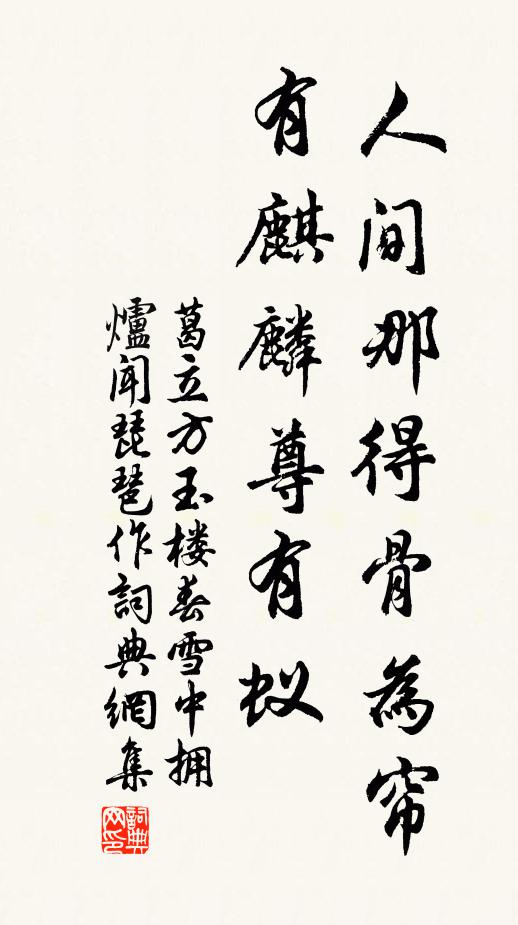 人間那得骨為帘
有麒麟尊有蚁
葛立方玉楼春雪中拥
爐闻琵琶作詞典網集
詞典网印